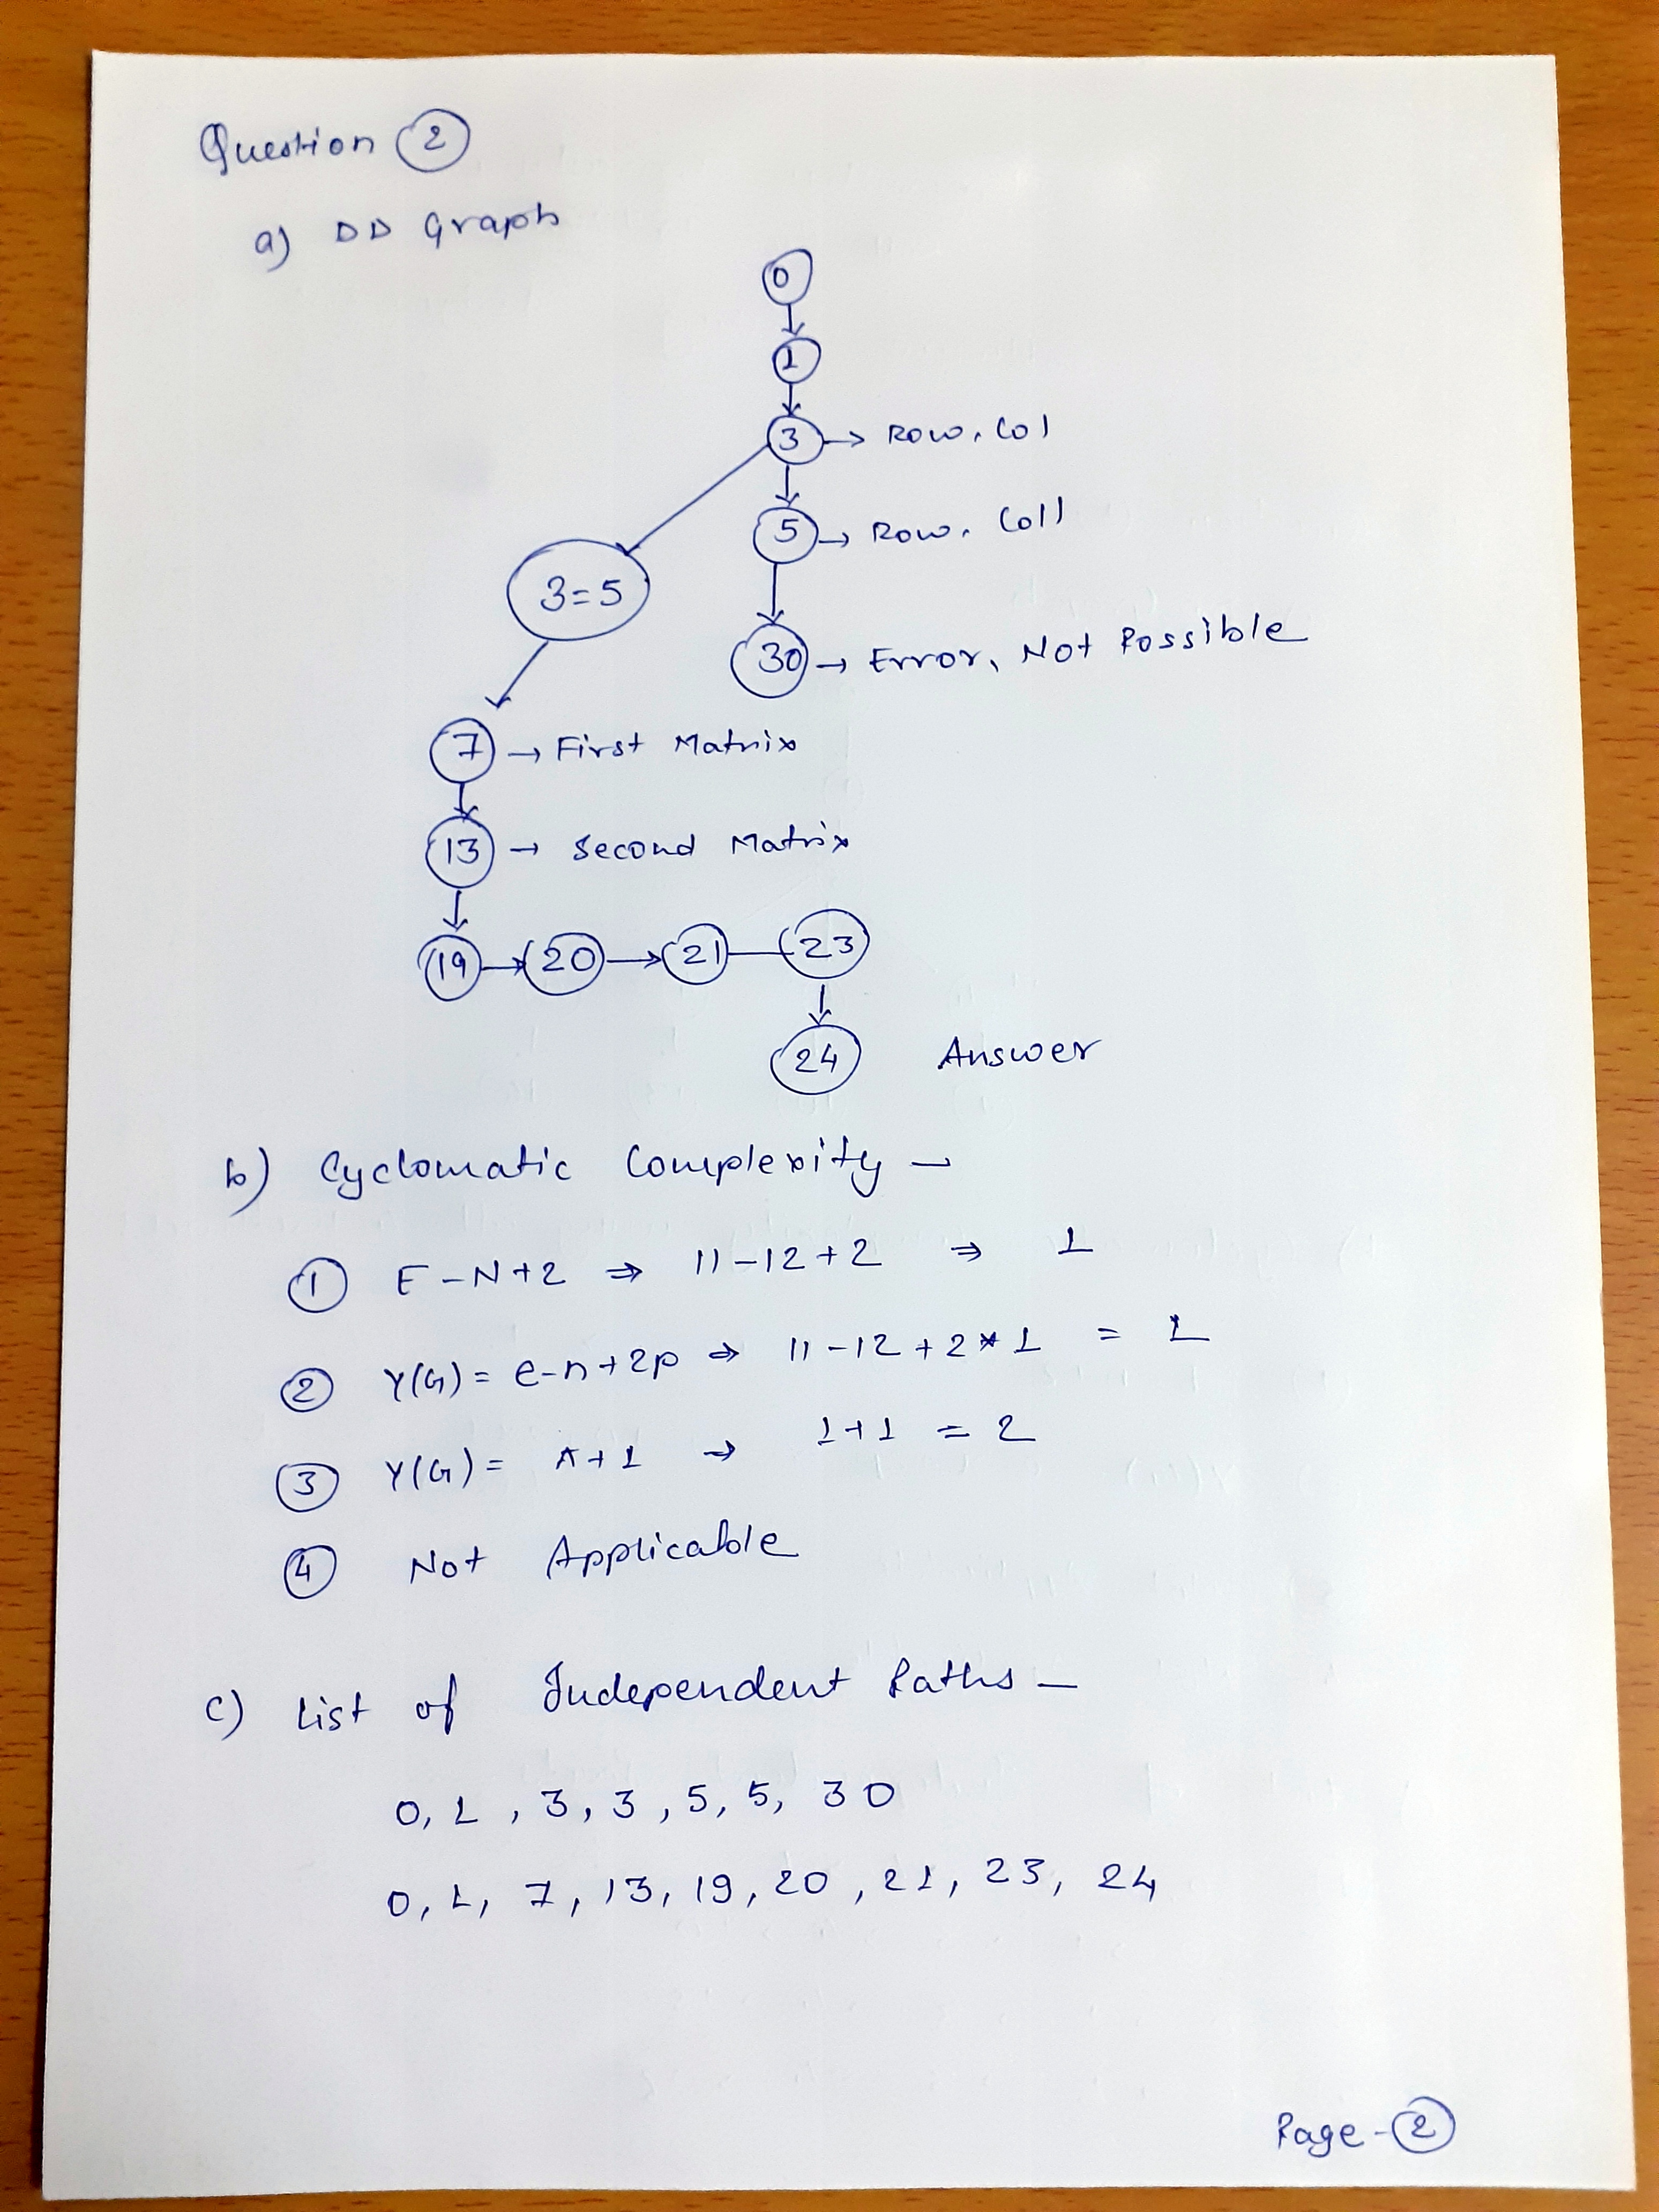 Question 2
a) DD Graph
0
1
3 → Row, Col
5 → Row, Col1
3=5
30 → Error, Not Possible
7 → First Matrix
13 → Second Matrix
19 → 20 → 21 — 23
24 Answer
b) Cyclomatic Complexity –
1 E-N+2 ⇒ 11-12+2 ⇒ 1
2 Y(G) = e-n+2p ⇒ 11-12+2*1 = 1
3 Y(G) = π+1 → 1+1 = 2
4 Not Applicable
c) List of Independent Paths –
0, 1, 3, 3, 5, 5, 30
0, 1, 7, 13, 19, 20, 21, 23, 24
Page - 2